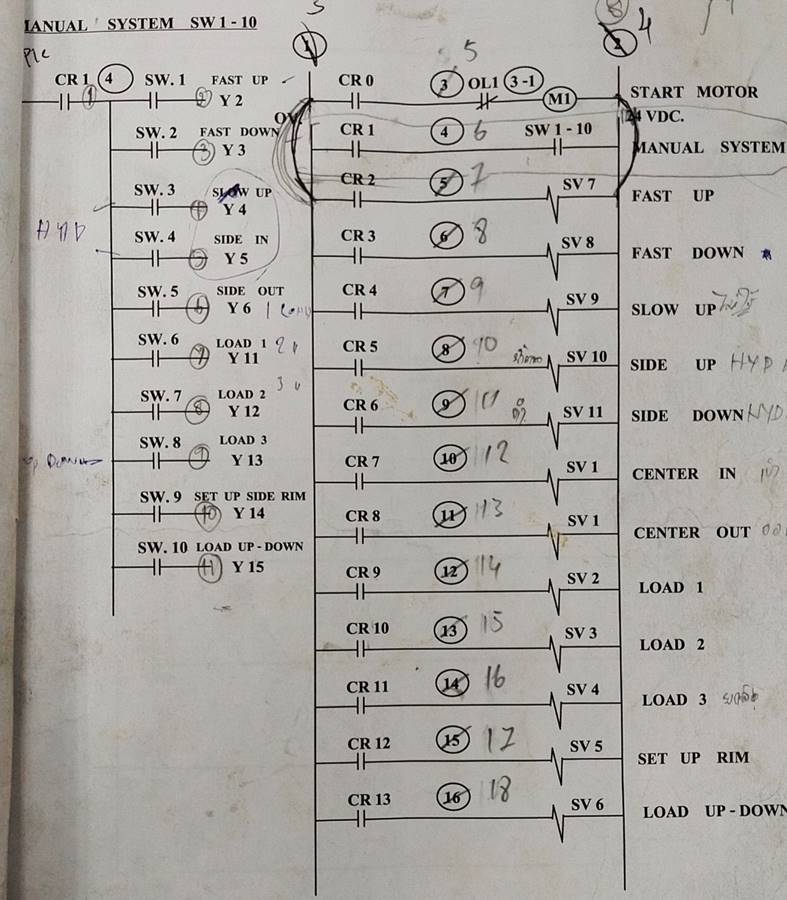 MANUAL SYSTEM SW 1 - 10
PLC
CR 1 4 SW. 1 FAST UP
1 2 Y 2
SW. 2 FAST DOWN
3 Y 3
SW. 3 SLOW UP
4 Y 4
HYD
SW. 4 SIDE IN
5 Y 5
SW. 5 SIDE OUT
6 Y 6 1
SW. 6 LOAD 1 2
7 Y 11
SW. 7 LOAD 2 3
8 Y 12
SW. 8 LOAD 3
9 Y 13
SW. 9 SET UP SIDE RIM
10 Y 14
SW. 10 LOAD UP - DOWN
11 Y 15
1 2 4
5
CR 0 3 OL1 3 -1 M1 START MOTOR
OV. 24 VDC.
CR 1 4 6 SW 1 - 10 MANUAL SYSTEM
CR 2 5 7 SV 7 FAST UP
CR 3 6 8 SV 8 FAST DOWN
CR 4 7 9 SV 9 SLOW UP
CR 5 8 10 SV 10 SIDE UP HYD
CR 6 9 11 SV 11 SIDE DOWN HYD
CR 7 10 12 SV 1 CENTER IN
CR 8 11 13 SV 1 CENTER OUT
CR 9 12 14 SV 2 LOAD 1
CR 10 13 15 SV 3 LOAD 2
CR 11 14 16 SV 4 LOAD 3
CR 12 15 17 SV 5 SET UP RIM
CR 13 16 18 SV 6 LOAD UP - DOWN